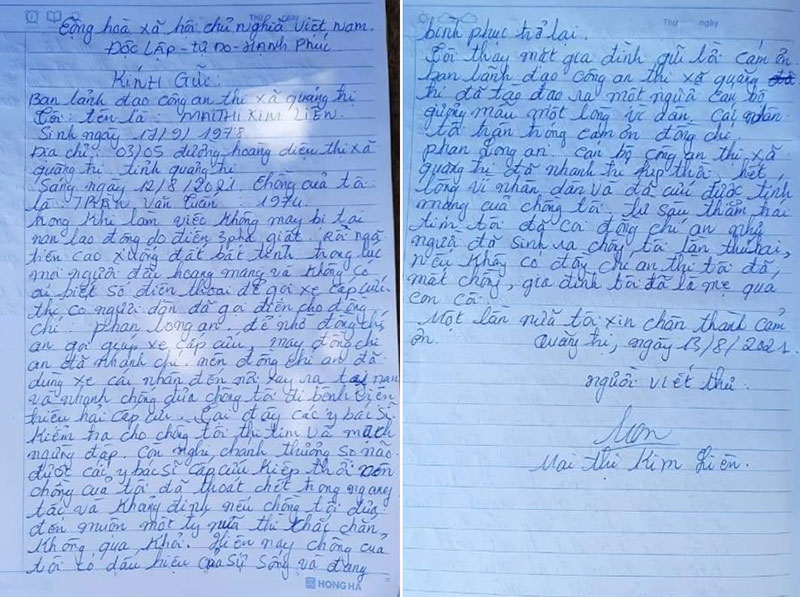 Cộng hoà xã hội chủ nghĩa Việt Nam.
ĐỘC LẬP - TỰ DO - HẠNH PHÚC
KÍNH GỬI:
Ban lảnh đạo công an thị xã quảng trị
Tôi tên là: MAI THỊ KIM LIÊN.
Sinh ngày 17/9/1978
Địa chỉ: 03/05 đường hoàng diệu thị xã
quảng trị tỉnh quảng trị
Sáng ngày 12/8/2021. Chồng của tôi
là: TRẦN Văn Tuân: 1974
trong khi làm việc không may bị tai
nạn lao động do điện 3 pha giật. Rồi ngã
trên cao xuống đất bất tỉnh trong lúc
mọi người đều hoang mang và không có
ai biết số điện thoại để gọi xe cấp cứu.
thì có người dân đã gọi điện cho đồng
chí: phan long an. để nhờ đồng chí
an gọi giúp xe cấp cứu, may đồng chí
an đã nhanh chí. nên đồng chí an đã
dùng xe cái nhân đến nơi xảy ra tai nạn
và nhanh chóng đưa chồng tôi đi bệnh viện
triệu hải cấp cứu. Tại đây các y bác sĩ
kiểm tra cho chồng tôi thì tim và mạch
ngừng đập.
được các y bác sĩ cấp cứu kiệp thời nên
chồng của tôi đã thoát chết trong ngang
tấc và khang định nếu chồng tôi đưa
đến muôn một tý nữa thì chắc chắn,
không qua khỏi. Hiện nay chồng của
tôi có dấu hiệu của sự sống và đang
HONG HÀ
Thứ ngày
bình phục trở lại.
Tôi thay mặt gia đình gửi lời cảm ơn.
ban lảnh đạo công an thị xã quảng
trị đã tạo đao ra một người can bộ
gương mẩu một lòng vì dân. Cái nhân
tôi trân trong cảm ơn đồng chí.
phan long an. Cán bộ công an thị xã
quảng trị đã nhanh trí giúp thời, hết
lòng vì nhân dân và đã cứu được tính
mang của chồng tôi. Từ sâu thẳm trái
tim tôi đã coi đồng chí an như
người đã sinh ra chồng tôi lần thứ hai,
nếu không có đồng chí an thì tôi đã,
mất chồng, gia đình tôi đã là mẹ quá
con côi.
Một lần nữa tôi xin chân thành cảm
ơn.
Quảng trị, ngày 13/8/2021.
người viết thư.
Mai Thị Kim Liên.